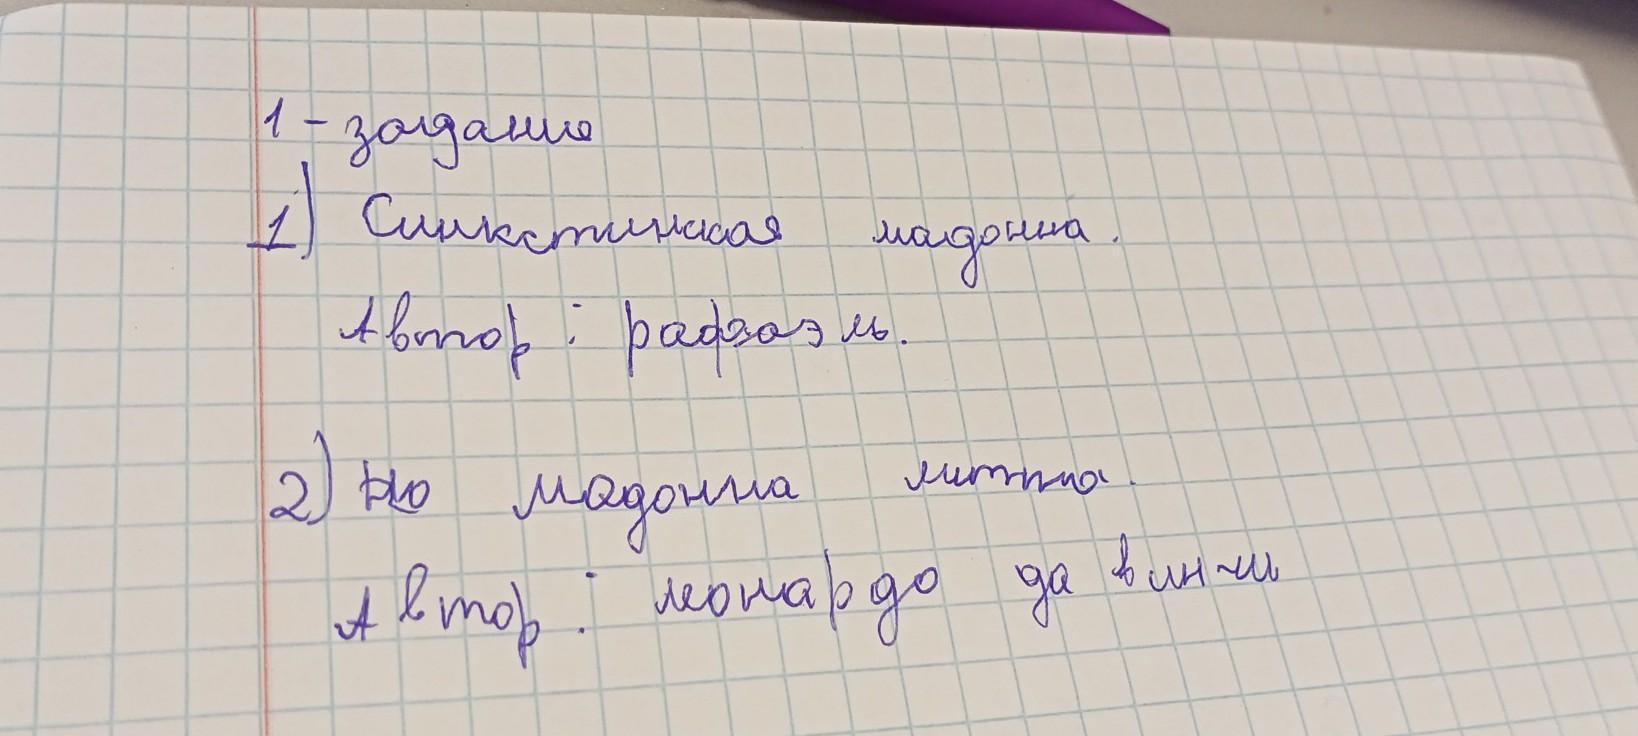 1 - задание
1) Сикстинская мадонна.
Автор: рафаэль.
2) мадонна литта.
Автор: леонардо да винчи